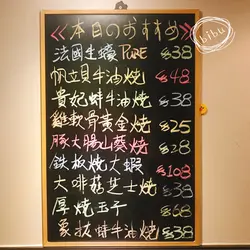 ≪本日のおすすめ≫
bibu
法國生蠔 PURE $38
帆立貝牛油燒 $48
貴妃蚌牛油燒 $38
雞軟骨黃金燒 $25
豚大腸山葵燒 $28
鉄板燒大蝦 $108
大啡菇芝士燒 $38
厚燒玉子 $68
象拔蚌牛油燒 $38